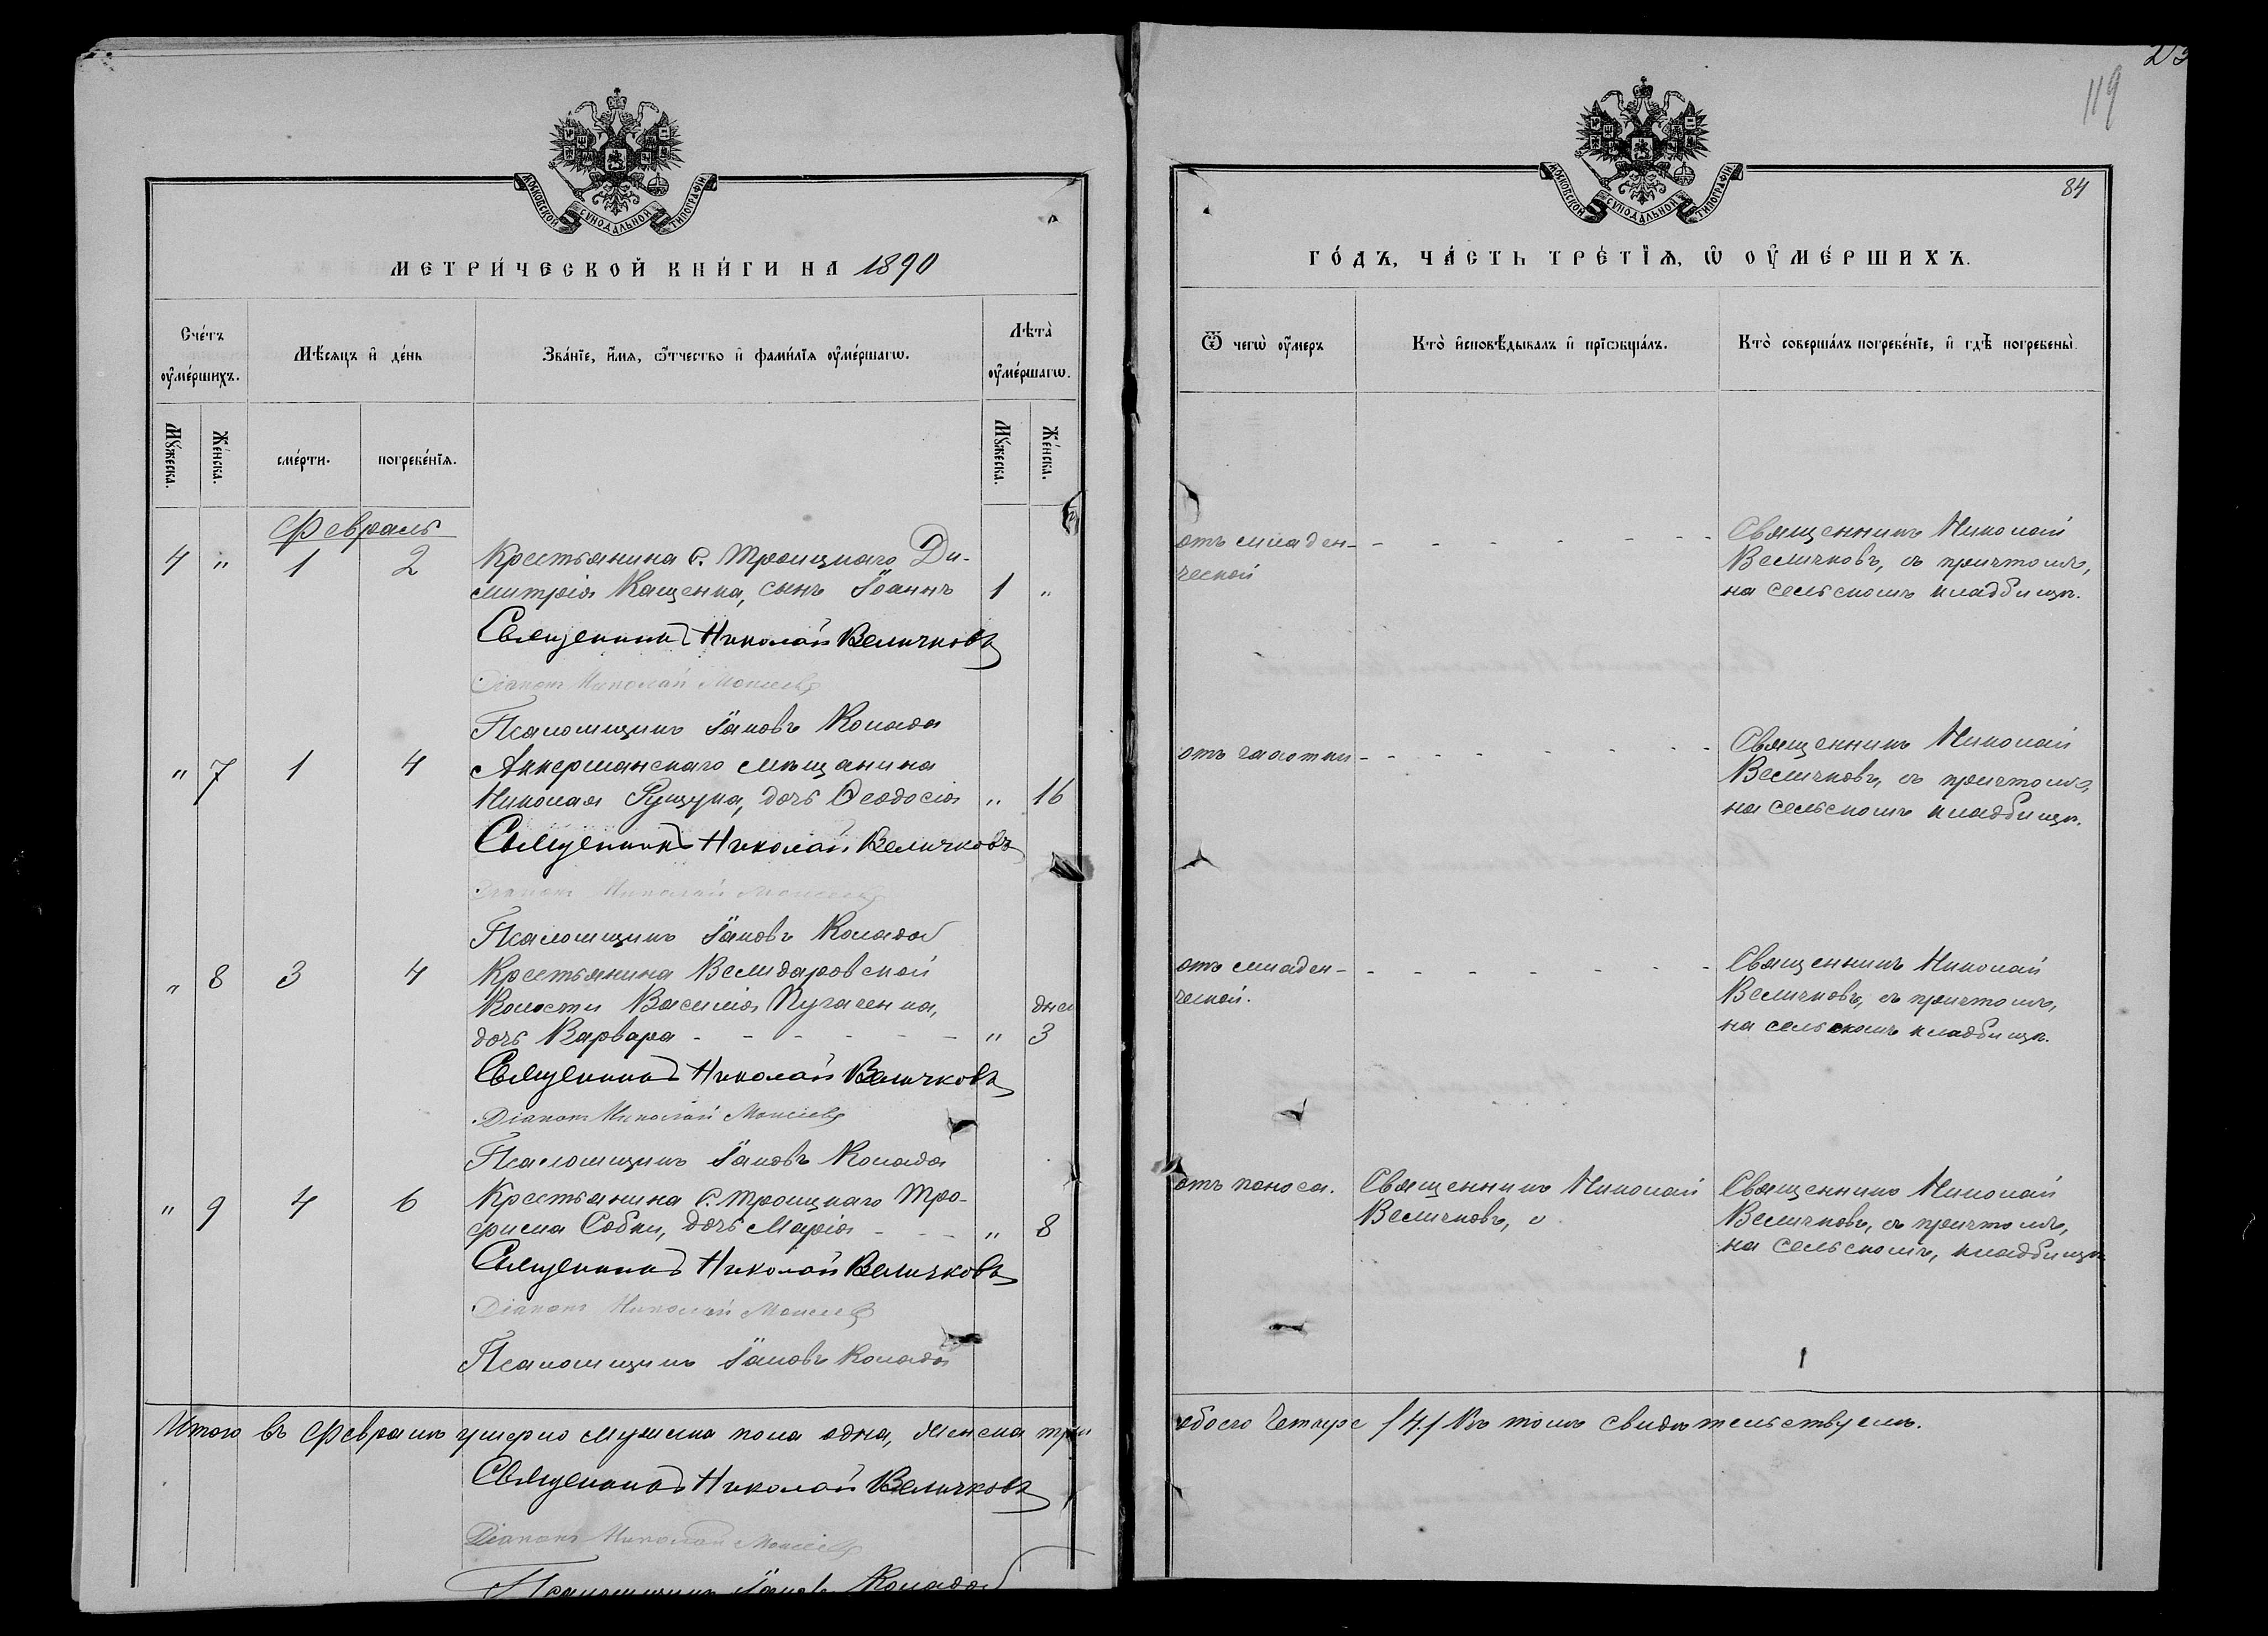 213
119
МОСКОВСКОЙ СѴНОДАЛЬНОЙ ТИПОГРАФІИ
МЕТРИ́ЧЕСКОЙ КНИ́ГИ НА 1890
Сче́тъ ᲂу҆ме́ршихъ.
Мѣ́сяцъ и҆ де́нь
Зва́нїе, и҆́мѧ, ѻ҆́тчество и҆ фами́лїѧ ᲂу҆ме́ршагѡ.
Лѣта̀ ᲂу҆ме́ршагѡ.
Мꙋ́жеска.
Же́нска.
сме́рти.
погребе́нїѧ.
Мꙋ́жеска.
Же́нска.
Февраль
4 " 1 2 Крестьянина с. Троицкаго Ди-
митрія Кащенка, сынъ Іоаннъ 1 "
Священникъ Николай Величковъ
Діаконъ Николай Моисеевъ
Псаломщикъ Іаковъ Колада
" 7 1 4 Аккерманскаго мѣщанина
Николая Рущука, дочь Ѳеодосія " 16
Священникъ Николай Величковъ
Діаконъ Николай Моисеевъ
Псаломщикъ Іаковъ Колада
" 8 3 4 Крестьянина Велидаровской
Волости Василія Пугаченка, дней
дочь Варвара - - - - - - " 3
Священникъ Николай Величковъ
Діаконъ Николай Моисеевъ
Псаломщикъ Іаковъ Колада
" 9 4 6 Крестьянина с. Троицкаго Тро-
фима Собки, дочь Марія - - - " 8
Священникъ Николай Величковъ
Діаконъ Николай Моисеевъ
Псаломщикъ Іаковъ Колада
Итого въ Февралѣ умерло мужска пола одна, женска три
Священникъ Николай Величковъ
Діаконъ Николай Моисеевъ
Псаломщикъ Іаковъ Колада
МОСКОВСКОЙ СѴНОДАЛЬНОЙ ТИПОГРАФІИ
84
ГО́ДЪ, ЧА́СТЬ ТРЕ́ТЇѦ, Ѡ҆ ОУ҆МЕ́РШИХЪ.
Ѿ чегѡ̀ ᲂу҆́меръ
Кто̀ и҆сповѣ́дывалъ и҆ прїѡбща́лъ.
Кто̀ соверша́лъ погребе́нїе, и҆ гдѣ̀ погребены̀.
отъ младен- - - - - - - - Священникъ Николай
ческой Величковъ, съ причтомъ,
на сельскомъ кладбищѣ.
отъ чахотки - - - - - - - Священникъ Николай
Величковъ, съ причтомъ,
на сельскомъ кладбищѣ.
отъ младен- - - - - - - - Священникъ Николай
ческой. Величковъ, съ причтомъ,
на сельскомъ кладбищѣ.
отъ поноса. Священникъ Николай Священникъ Николай
Величковъ, Величковъ, съ причтомъ,
на сельскомъ, кладбищѣ
обоего Четыре /4./ Въ томъ свидѣтельствуемъ.